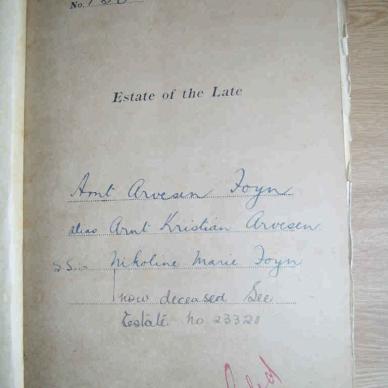 No.
Estate of the Late
Arnt Arvesen Foyn
alias Arnt Kristian Arvesen
SS. Nikoline Marie Foyn
now deceased See
Estate No 23321